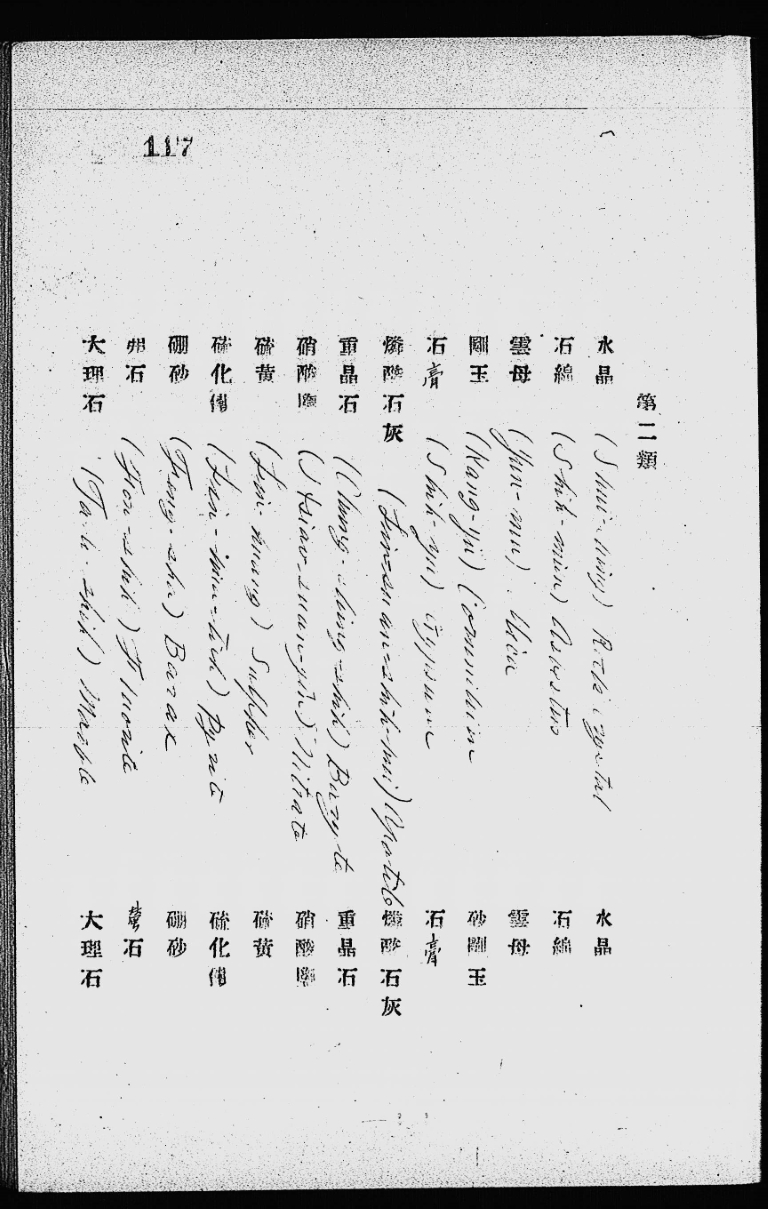 117
第二類
水晶 (Shui-tsing) Rock crystal 水晶
石綿 (Shih-mien) Asbestus 石綿
雲母 (Yun-mu) Mica 雲母
剛玉 (Kang-yü) 砂剛玉
石膏 (Shih-kao) Gypsum 石膏
燐酸石灰 燐酸石灰
重晶石 (Chung-tsing-shih) Baryte 重晶石
硝酸鹽 (Hsiao-suan-yin) Nitrate 硝酸鹽
硫黄 (Liu-huang) Sulpher 硫黄
硫化鐵 Pyrite 硫化鐵
硼砂 Borax 硼砂
弗石 Fluorite 螢石
大理石 (Ta-li-shih) Marble 大理石